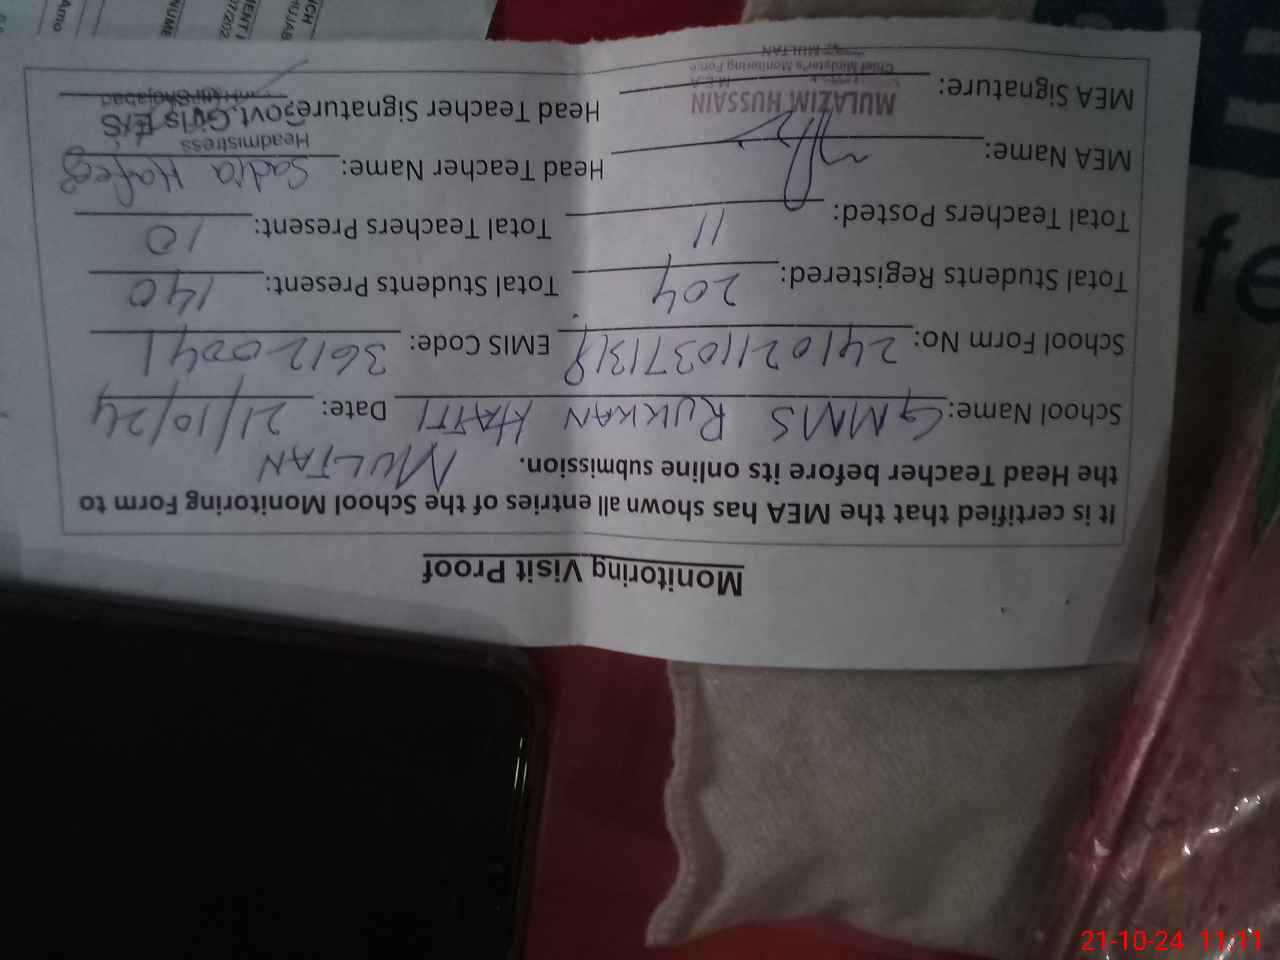 Monitoring Visit Proof
It is certified that the MEA has shown all entries of the School Monitoring Form to
the Head Teacher before its online submission. MULTAN
School Name: GMMS RUKKAN HATTI Date: 21/10/24
School Form No: EMIS Code: 36120041
Total Students Registered: 204 Total Students Present: 140
Total Teachers Posted: 11 Total Teachers Present: 10
MEA Name: Head Teacher Name: Sadia Hafeez
Headmistress
MEA Signature: MULAZIM HUSSAIN Head Teacher Signature: Govt. Girls E/S
Chief Minister's Monitoring Force
MULTAN
21-10-24 11:11